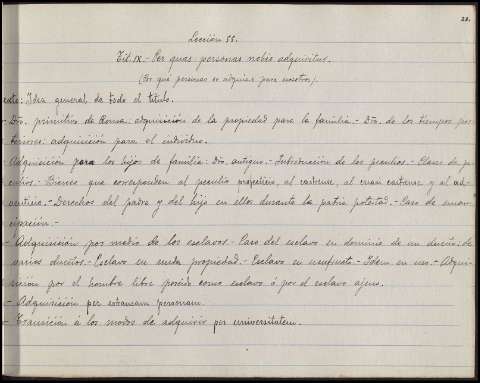 22.
Lección 55.
Tít. IX.- Per quas personas nobis adquiritur.
(Por qué personas se adquiere para nosotros).
Idea general de todo el título.
- Dro. primitivo de Roma: adquisición de la propiedad para la familia.- Dro. de los tiempos pos-
teriores: adquisición para el individuo.
- Adquisición para los hijos de familia: Dro. antiguo.- Introducción de los peculios.- Clases de pe-
culios.- Bienes que corresponden al peculio profecticio, al castrense, al cuasi castrense y al ad-
venticio.- Derechos del padre y del hijo en ellos durante la patria potestad.- Caso de eman-
cipación.-
- Adquisición por medio de los esclavos.- Caso del esclavo en dominio de un dueño; de
varios dueños.- Esclavo en nuda propiedad.- Esclavo en usufructo.- Idem en uso.- Adqui-
sición por el hombre libre poseído como esclavo ó por el esclavo ajeno.
- Adquisición per extraneam personam.
- Transición á los modos de adquirir per universitatem.